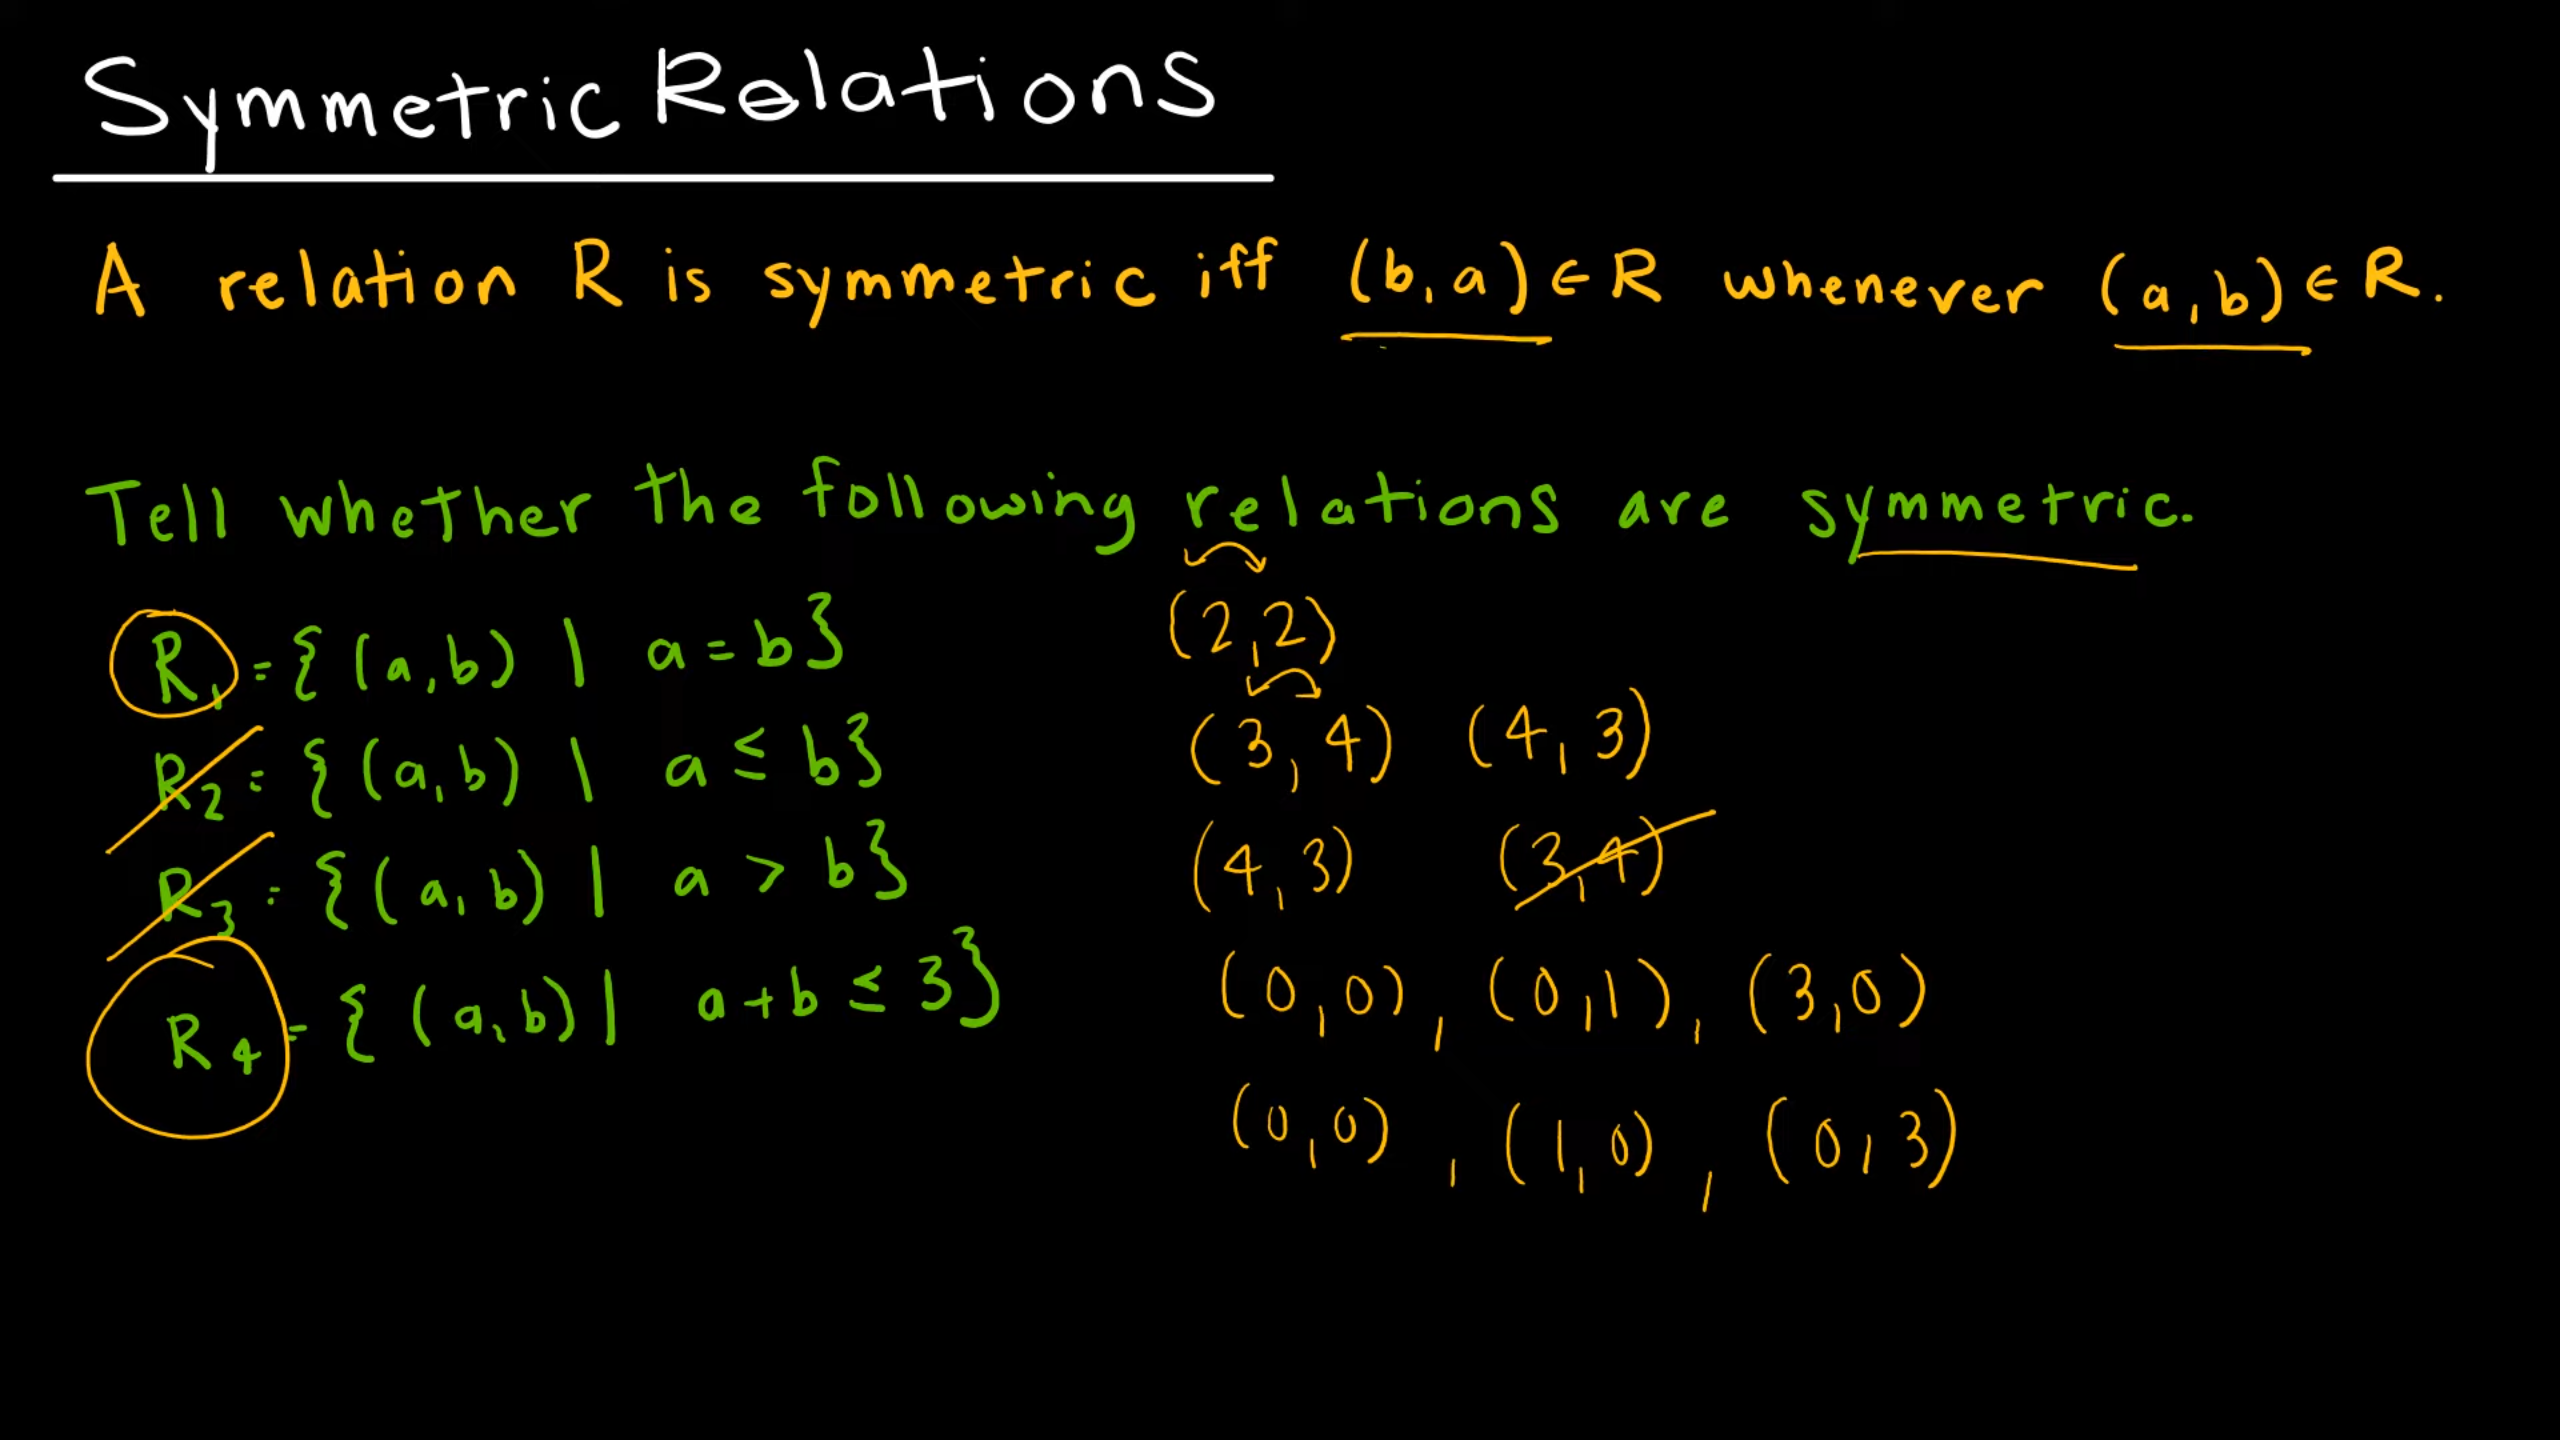 Symmetric Relations
A relation R is symmetric iff (b,a) ∈ R whenever (a,b) ∈ R.
Tell whether the following relations are symmetric.
R₁ = {(a,b) | a = b} (2,2)
R₂ = {(a,b) | a ≤ b} (3,4) (4,3)
R₃ = {(a,b) | a > b} (4,3) (3,4)
R₄ = {(a,b) | a + b ≤ 3} (0,0), (0,1), (3,0)
(0,0), (1,0), (0,3)